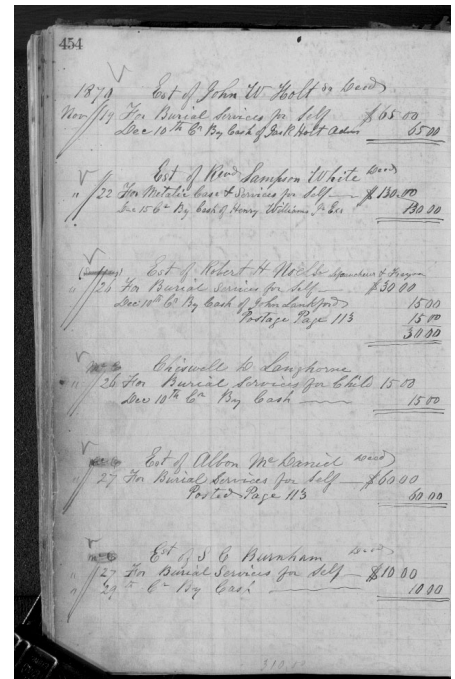 454
1879 Est of John W Holt Sr Decd
Nov 19 For Burial Services for Self $65 00
Dec 10th Cr By Cash of Jas R Holt Admr 65 00
Est of Revd Sampson White Decd
" 22 For Metalic Case & Services for Self $130.00
Dec 15 Cr By Cash of Henry Williams Jr Exr 130 00
Est of Robert H Noell
" 26 For Burial Services for Self $30 00
Dec 10th Cr By Cash of John Lankford 15 00
Postage Page 113 15 00
30 00
Chiswell D Langhorne
" 26 For Burial Services for Child 15 00
Dec 10th Cr By Cash 15 00
Est of Albon McDaniel Decd
" 27 For Burial Services for Self $60 00
Posted Page 113 60 00
Est of S C Burnham Decd
" 27 For Burial Services for Self $10 00
" 29th Cr By Cash 10 00